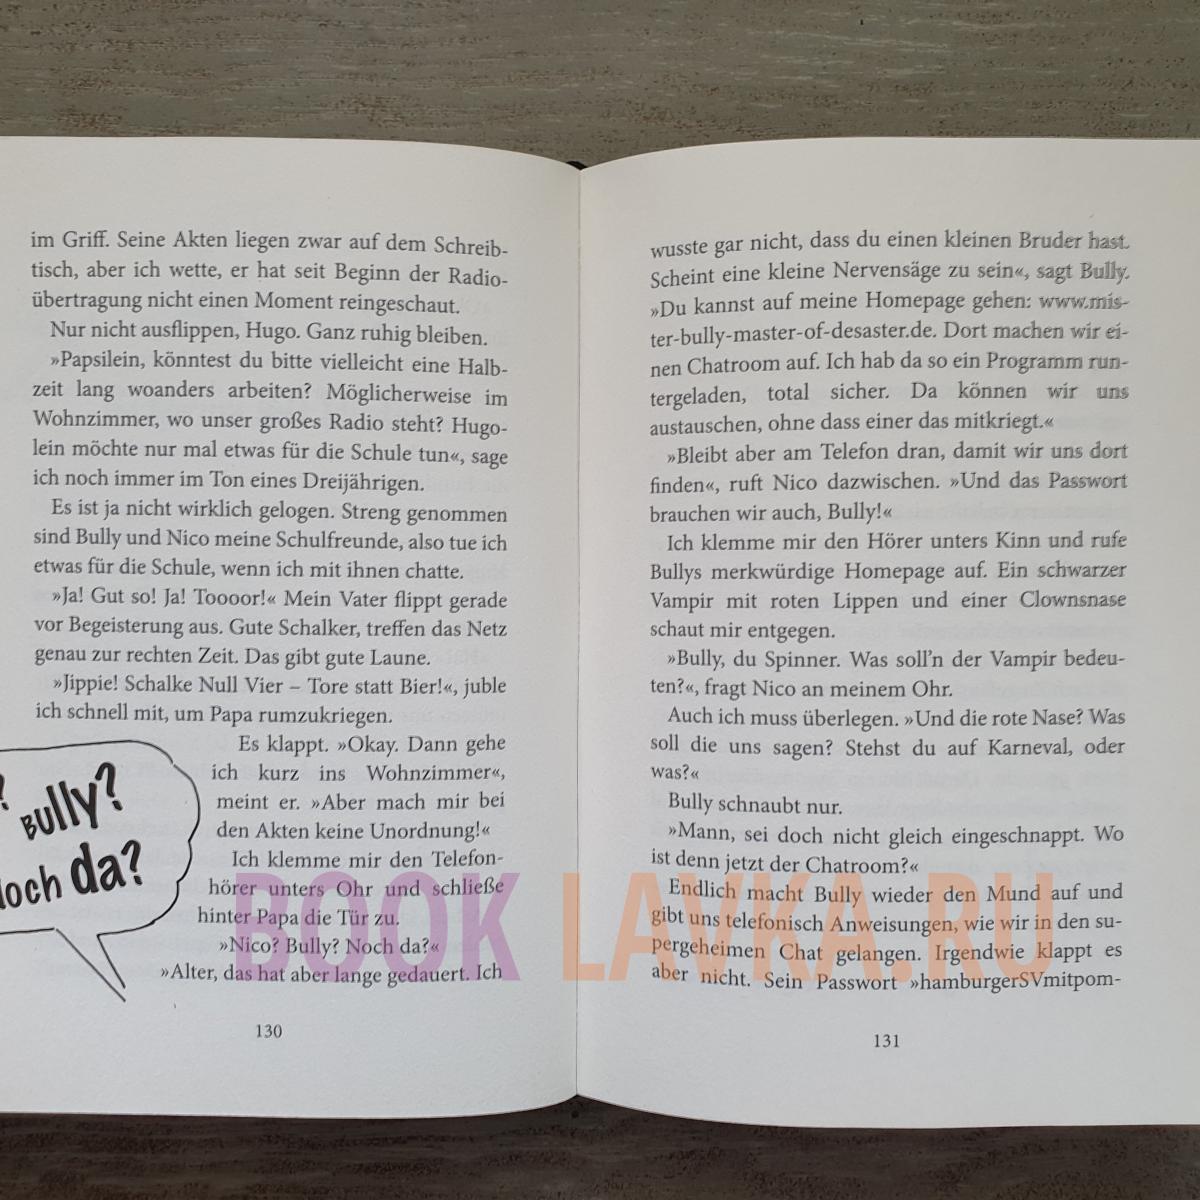 im Griff. Seine Akten liegen zwar auf dem Schreib-
tisch, aber ich wette, er hat seit Beginn der Radio-
übertragung nicht einen Moment reingeschaut.
Nur nicht ausflippen, Hugo. Ganz ruhig bleiben.
»Papsilein, könntest du bitte vielleicht eine Halb-
zeit lang woanders arbeiten? Möglicherweise im
Wohnzimmer, wo unser großes Radio steht? Hugo-
lein möchte nur mal etwas für die Schule tun«, sage
ich noch immer im Ton eines Dreijährigen.
Es ist ja nicht wirklich gelogen. Streng genommen
sind Bully und Nico meine Schulfreunde, also tue ich
etwas für die Schule, wenn ich mit ihnen chatte.
»Ja! Gut so! Ja! Toooor!« Mein Vater flippt gerade
vor Begeisterung aus. Gute Schalker, treffen das Netz
genau zur rechten Zeit. Das gibt gute Laune.
»Jippie! Schalke Null Vier – Tore statt Bier!«, juble
ich schnell mit, um Papa rumzukriegen.
Es klappt. »Okay. Dann gehe
ich kurz ins Wohnzimmer«,
meint er. »Aber mach mir bei
den Akten keine Unordnung!«
Ich klemme mir den Telefon-
hörer unters Ohr und schließe
hinter Papa die Tür zu.
»Nico? Bully? Noch da?«
»Alter, das hat aber lange gedauert. Ich
? Bully?
Noch da?
130
wusste gar nicht, dass du einen kleinen Bruder hast.
Scheint eine kleine Nervensäge zu sein«, sagt Bully.
»Du kannst auf meine Homepage gehen: www.mis-
ter-bully-master-of-desaster.de. Dort machen wir ei-
nen Chatroom auf. Ich hab da so ein Programm run-
tergeladen, total sicher. Da können wir uns
austauschen, ohne dass einer das mitkriegt.«
»Bleibt aber am Telefon dran, damit wir uns dort
finden«, ruft Nico dazwischen. »Und das Passwort
brauchen wir auch, Bully!«
Ich klemme mir den Hörer unters Kinn und rufe
Bullys merkwürdige Homepage auf. Ein schwarzer
Vampir mit roten Lippen und einer Clownsnase
schaut mir entgegen.
»Bully, du Spinner. Was soll'n der Vampir bedeu-
ten?«, fragt Nico an meinem Ohr.
Auch ich muss überlegen. »Und die rote Nase? Was
soll die uns sagen? Stehst du auf Karneval, oder
was?«
Bully schnaubt nur.
»Mann, sei doch nicht gleich eingeschnappt. Wo
ist denn jetzt der Chatroom?«
Endlich macht Bully wieder den Mund auf und
gibt uns telefonisch Anweisungen, wie wir in den su-
pergeheimen Chat gelangen. Irgendwie klappt es
aber nicht. Sein Passwort »hamburgerSVmitpom-
131
BOOK LAVKA.RU